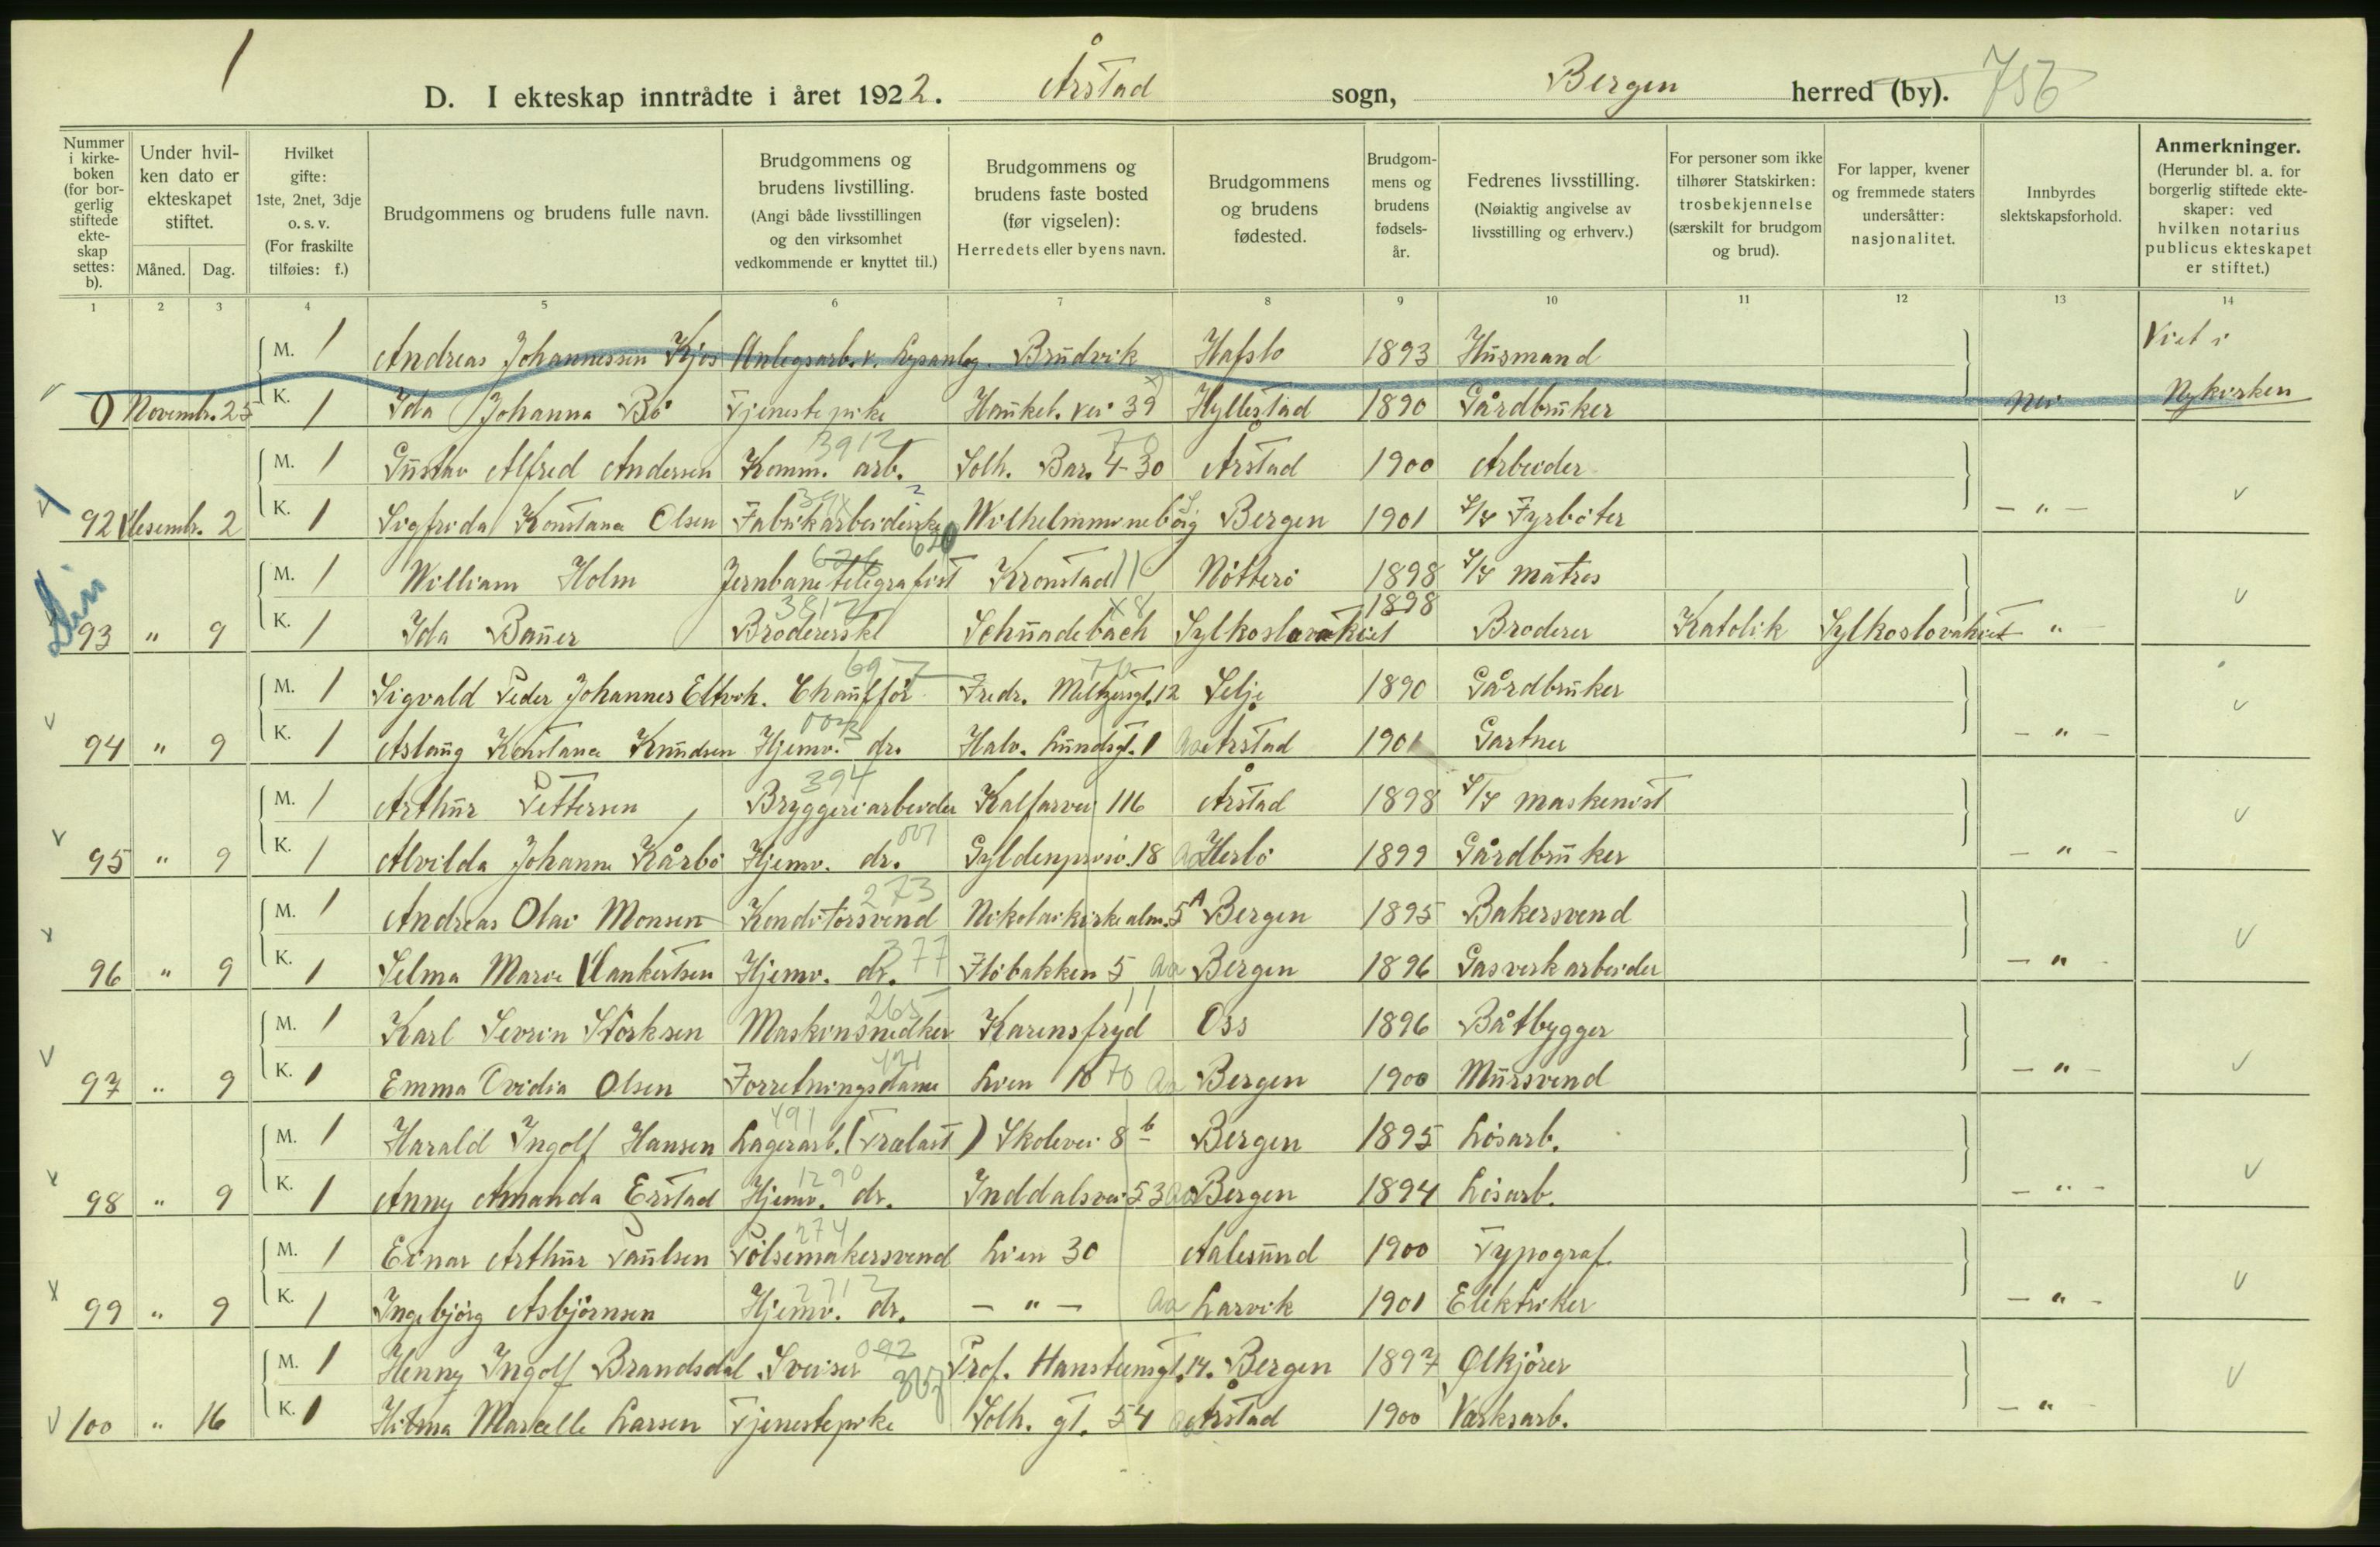 1
D. I ekteskap inntrådte i året 1922. Årstad sogn, Bergen herred (by). 756
Nummer i kirkeboken (for borgerlig stiftede ekteskap settes: b).
Under hvilken dato er ekteskapet stiftet.
Måned. Dag.
Hvilket gifte: 1ste, 2net, 3dje o. s. v. (For fraskilte tilføies: f.)
Brudgommens og brudens fulle navn.
Brudgommens og brudens livstilling. (Angi både livsstillingen og den virksomhet vedkommende er knyttet til.)
Brudgommens og brudens faste bosted (før vigselen): Herredets eller byens navn.
Brudgommens og brudens fødested.
Brudgommens og brudens fødselsår.
Fedrenes livsstilling. (Nøiaktig angivelse av livsstilling og erhverv.)
For personer som ikke tilhører Statskirken: trosbekjennelse (særskilt for brudgom og brud).
For lapper, kvener og fremmede staters undersåtter: nasjonalitet.
Innbyrdes slektskapsforhold.
Anmerkninger. (Herunder bl. a. for borgerlig stiftede ekteskaper: ved hvilken notarius publicus ekteskapet er stiftet.)
1 2 3 4 5 6 7 8 9 10 11 12 13 14
M. 1 Andreas Johannessen Kjos Anlegsarb. v. Lysanleg. Bruvik Hafslo 1893 Husmand Viet i
0 Novembr. 25 K. 1 Ida Johanna Bö Tjenestepike Haukel. vei 39 Hyllestad 1890 Gårdbruker Nei Nykirken
M. 1 Gustav Alfred Andersen Komm. arb. 3912 Solh. Bar. 4-30 Årstad 1900 Arbeider
92 Desembr. 2 K. 1 Sigfrida Konstance Olsen Fabrikarbeiderske Wilhelmmineborg Bergen 1901 S/S Fyrböter - " -
M. 1 William Holm Jernbanetelegrafist Kronstad Nötterö 1898 S/S Matros
93 " 9 K. 1 Ida Bauer Brodererske Schnadebach Sylkoslovakiet 1898 Broderer Katolik Sylkoslovakiet - " -
M. 1 Sigvald Peder Johannes Eltvik. Chaufför Fredr. Meltzersgt. 12 Selje 1890 Gårdbruker
94 " 9 K. 1 Aslaug Konstance Knudsen Hjemv. dr. Halv. Lundsgt. 1 Aa Årstad 1901 Gartner - " -
M. 1 Arthur Pettersen Bryggeriarbeider 394 Kalfarvei 116 Årstad 1898 S/S Maskinist
95 " 9 K. 1 Alvilda Johanne Kårbö Hjemv. dr. Gyldenprisv. 18 Aa Herlö 1899 Gårdbruker - " -
M. 1 Andreas Olai Monsen Konditorsvend 273 Nikolaikirkealm. 5A Bergen 1895 Bakersvend
96 " 9 K. 1 Selma Marie Dankertsen Hjemv. dr. 377 Flöbakken 5 Aa Bergen 1896 Gasverkarbeider - " -
M. 1 Karl Severin Störksen Maskinsnedker 265 Karensfryd Oss 1896 Båtbygger
97 " 9 K. 1 Emma Ovidia Olsen Forretningsdame Lien 10 Aa Bergen 1900 Mursvend - " -
M. 1 Harald Ingolf Hansen Lagerarb. (Trælast) 491 Skolevei 8b Bergen 1895 Lösarb.
98 " 9 K. 1 Anny Amanda Erstad Hjemv. dr. 1290 Inndalsvei 53 Aa Bergen 1894 Lösarb. - " -
M. 1 Einar Arthur Paulsen Pölsemakersvend 274 Lien 30 Aalesund 1900 Typograf
99 " 9 K. 1 Ingebjörg Asbjörnsen Hjemv. dr. - " - Aa Larvik 1901 Elektriker - " -
M. 1 Henny Ingolf Brandsdal Sveiser Prof. Hansteensgt. 14. Bergen 1897 Ölkjörer
100 " 16 K. 1 Hilma Marcelle Larsen Tjenestepike Solh. gt. 54 Aa Årstad 1900 Verksarb. - " -